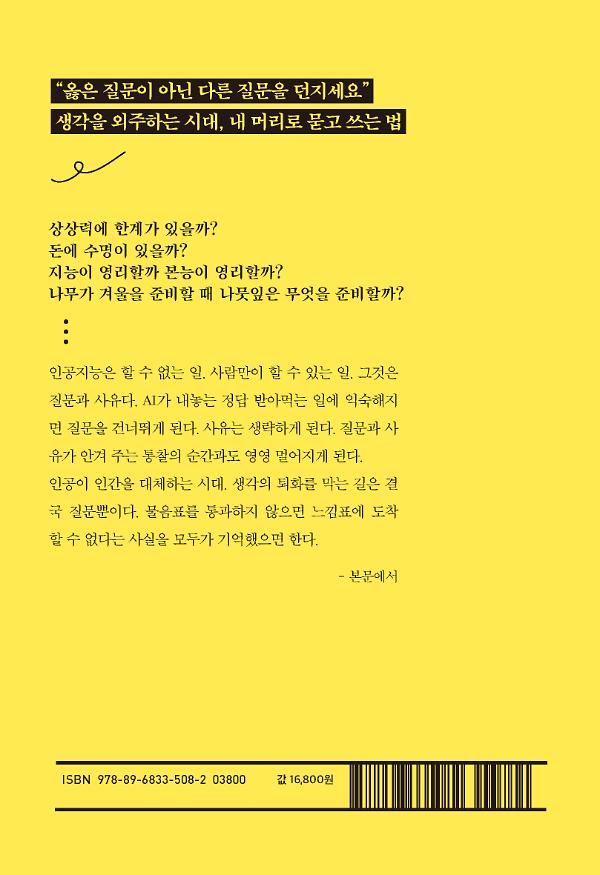 “옳은 질문이 아닌 다른 질문을 던지세요”
생각을 외주하는 시대, 내 머리로 묻고 쓰는 법
상상력에 한계가 있을까?
돈에 수명이 있을까?
지능이 영리할까 본능이 영리할까?
나무가 겨울을 준비할 때 나뭇잎은 무엇을 준비할까?
인공지능은 할 수 없는 일. 사람만이 할 수 있는 일. 그것은
질문과 사유다. AI가 내놓는 정답 받아먹는 일에 익숙해지
면 질문을 건너뛰게 된다. 사유는 생략하게 된다. 질문과 사
유가 안겨 주는 통찰의 순간과도 영영 멀어지게 된다.
인공이 인간을 대체하는 시대. 생각의 퇴화를 막는 길은 결
국 질문뿐이다. 물음표를 통과하지 않으면 느낌표에 도착
할 수 없다는 사실을 모두가 기억했으면 한다.
- 본문에서
ISBN 978-89-6833-508-2 03800 값 16,800원